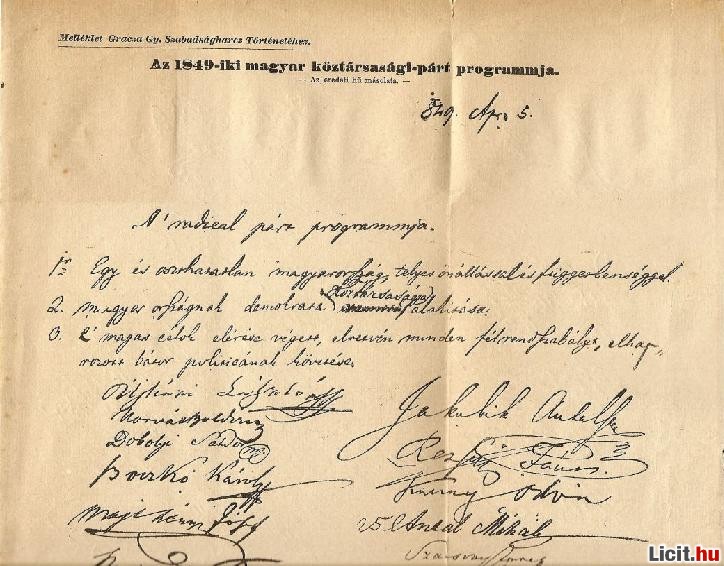 Melléklet Gracza Gy. Szabadságharcz Történetéhez.
Az 1849-iki magyar köztársasági-párt programmja.
— Az eredeti hű másolata. —
849. Apr. 5.
A' radical párt programmja.
1ör Egy és oszhatatlan magyarország, teljes önállással és függetlenséggel.
2. magyar országnak demokrata Köztársasággá átalakitása.
3. E' magas célok elérése végett, elvetvén minden félrendszabályt, elhatározott bátor politicának követése.
Horvát Boldizsár
Dobolyi Sándor
Boczkó Károly
Jakubik
János
Kuny Ödön
Antal Mihály
Licit.hu